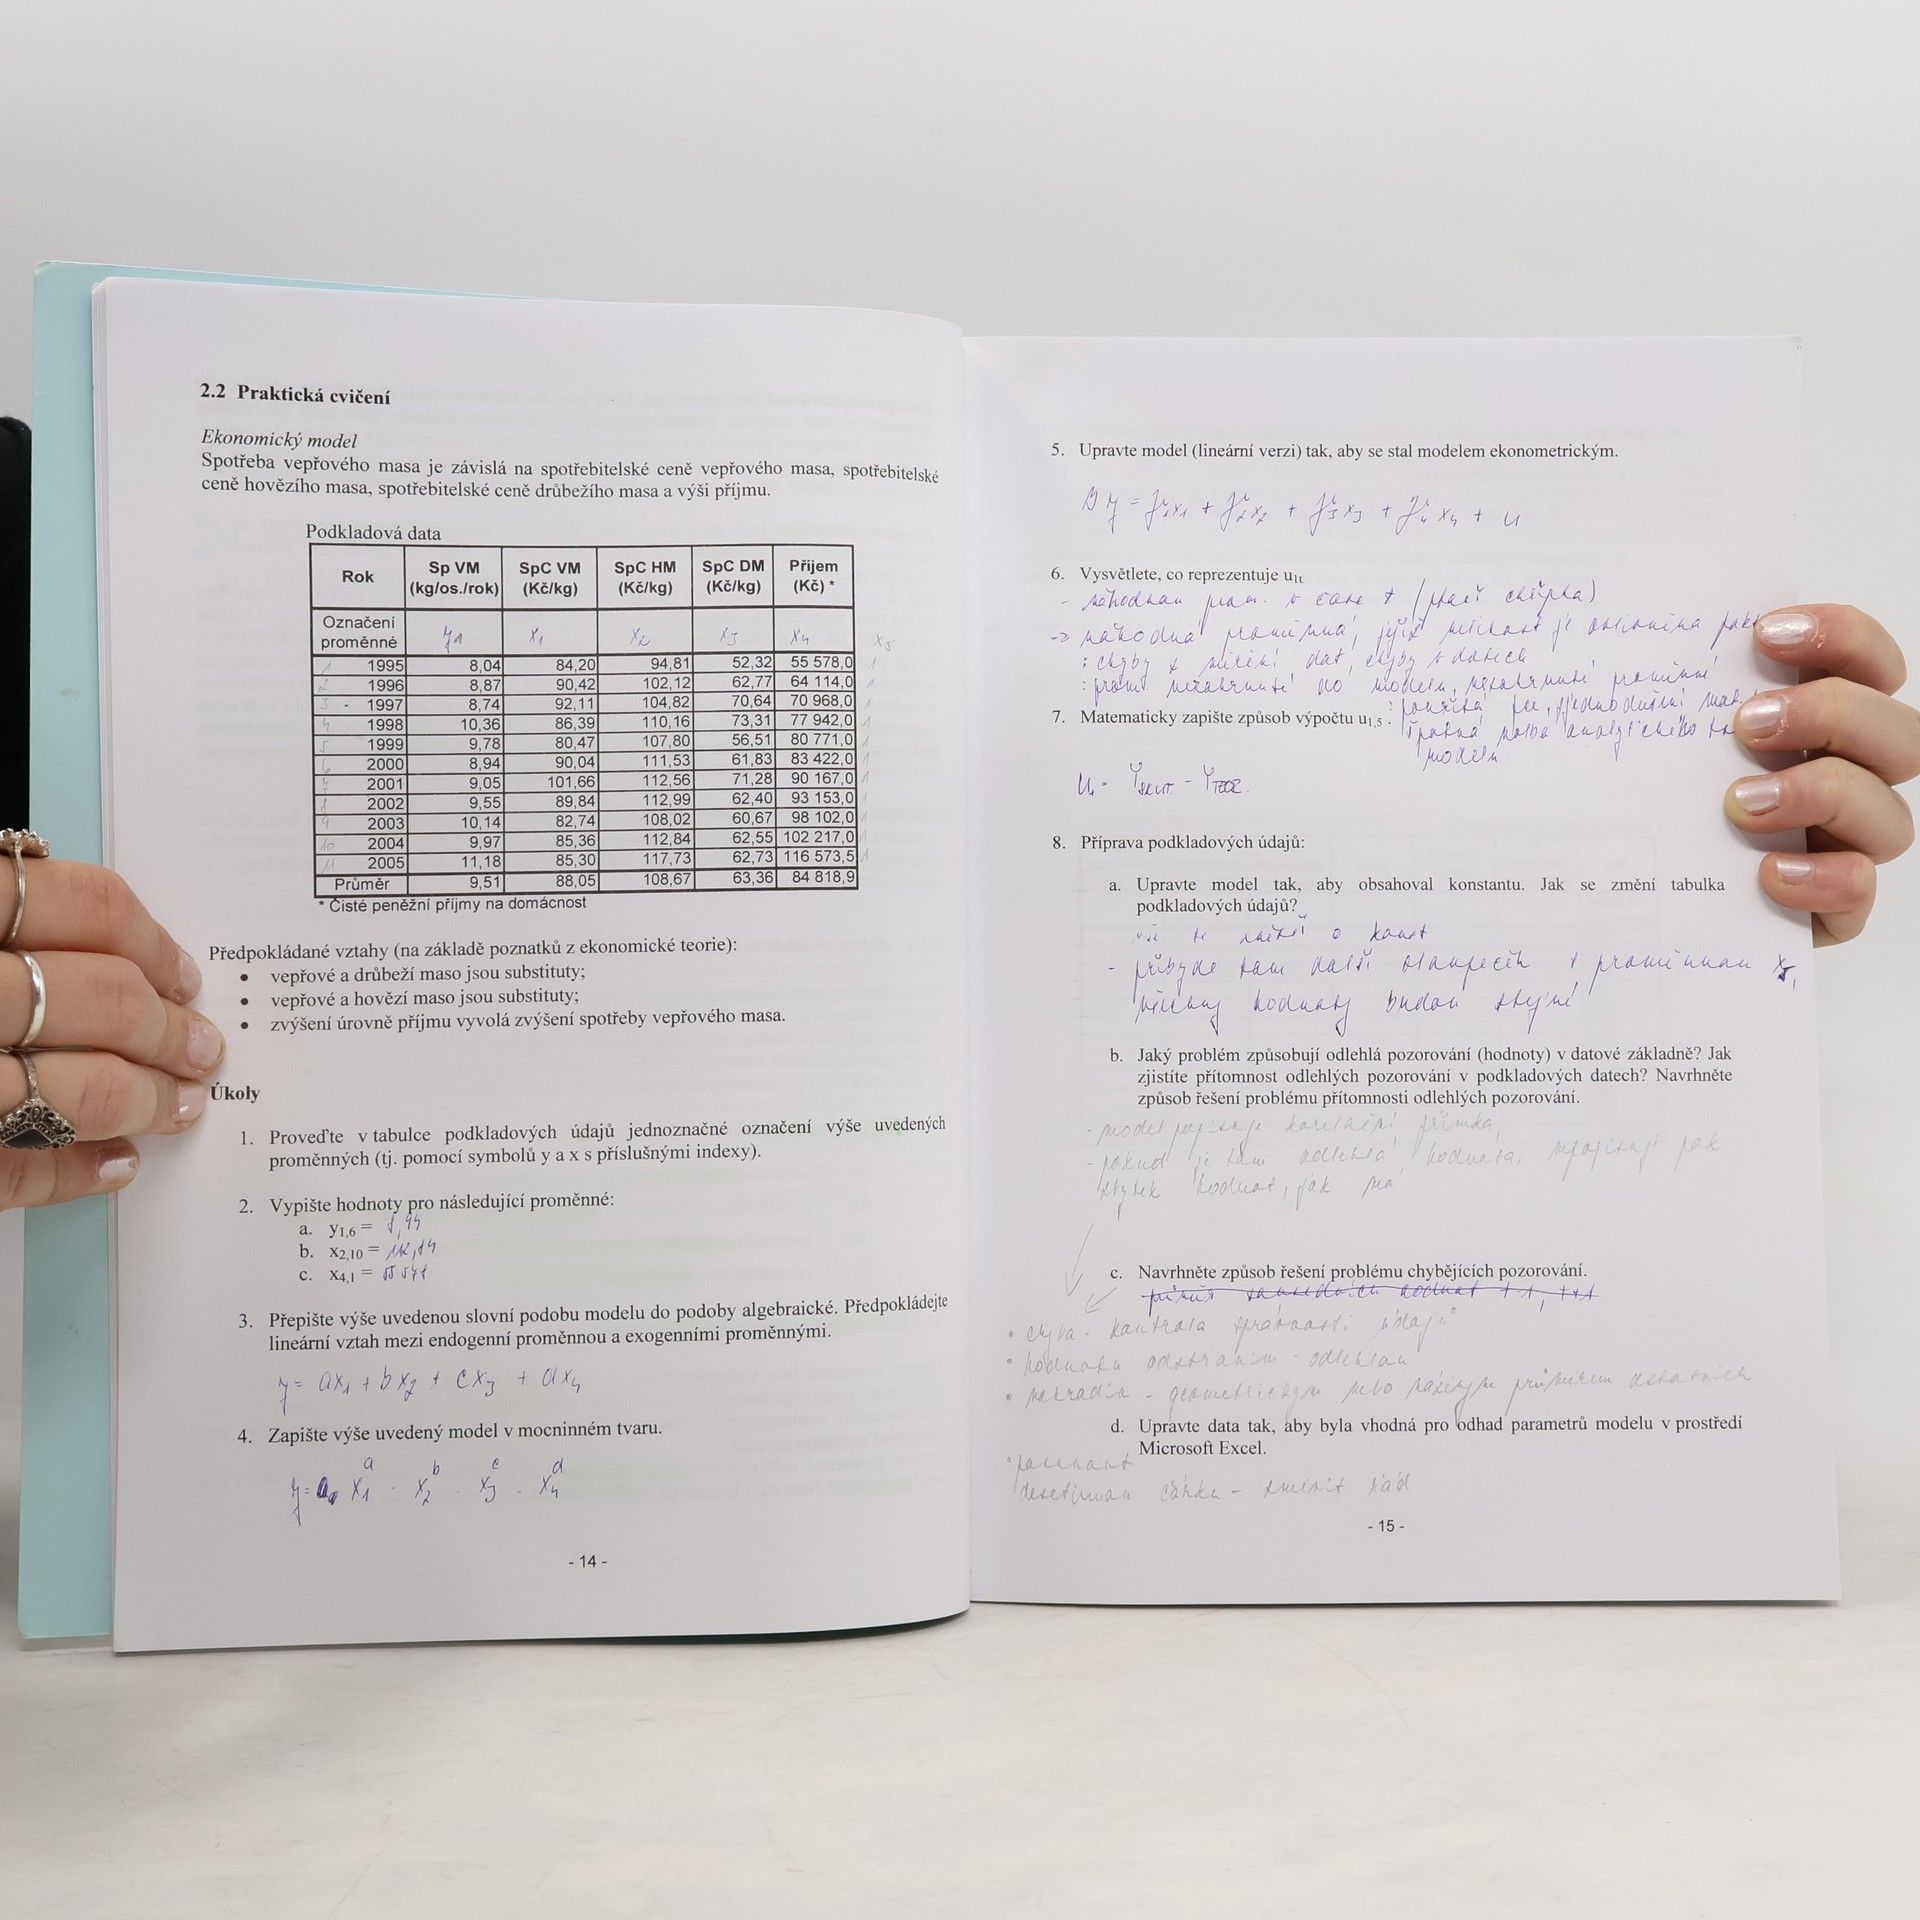 2.2 Praktická cvičení
Ekonomický model
Spotřeba vepřového masa je závislá na spotřebitelské ceně vepřového masa, spotřebitelské
ceně hovězího masa, spotřebitelské ceně drůbežího masa a výši příjmu.
Podkladová data
Rok Sp VM (kg/os./rok) SpC VM (Kč/kg) SpC HM (Kč/kg) SpC DM (Kč/kg) Příjem (Kč) *
Označení proměnné y1 x1 x2 x3 x4 x5
1 1995 8,04 84,20 94,81 52,32 55 578,0 1
2 1996 8,87 90,42 102,12 62,77 64 114,0 1
3 - 1997 8,74 92,11 104,82 70,64 70 968,0 1
4 1998 10,36 86,39 110,16 73,31 77 942,0 1
5 1999 9,78 80,47 107,80 56,51 80 771,0 1
6 2000 8,94 90,04 111,53 61,83 83 422,0 1
7 2001 9,05 101,66 112,56 71,28 90 167,0 1
8 2002 9,55 89,84 112,99 62,40 93 153,0 1
9 2003 10,14 82,74 108,02 60,67 98 102,0 1
10 2004 9,97 85,36 112,84 62,55 102 217,0 1
11 2005 11,18 85,30 117,73 62,73 116 573,5 1
Průměr 9,51 88,05 108,67 63,36 84 818,9
* Čisté peněžní příjmy na domácnost
Předpokládané vztahy (na základě poznatků z ekonomické teorie):
• vepřové a drůbeží maso jsou substituty;
• vepřové a hovězí maso jsou substituty;
• zvýšení úrovně příjmu vyvolá zvýšení spotřeby vepřového masa.
Úkoly
1. Proveďte v tabulce podkladových údajů jednoznačné označení výše uvedených
proměnných (tj. pomocí symbolů y a x s příslušnými indexy).
2. Vypište hodnoty pro následující proměnné:
a. y1,6 = 8,94
b. x2,10 = 112,84
c. x4,1 = 55 578
3. Přepište výše uvedenou slovní podobu modelu do podoby algebraické. Předpokládejte
lineární vztah mezi endogenní proměnnou a exogenními proměnnými.
y = ax1 + bx2 + cx3 + dx4
4. Zapište výše uvedený model v mocninném tvaru.
y = a0 x1^a · x2^b · x3^c · x4^d
- 14 -
5. Upravte model (lineární verzi) tak, aby se stal modelem ekonometrickým.
x1 + x2 + x3 + x4 + u
6. Vysvětlete, co reprezentuje u1t.
- náhodnou prom. v čase t (ptačí chřipka)
-> náhodná proměnná, jejíž velikost je ovlivněna
: chyby v měření dat, chyby v datech
: prom. nezahrnuté do modelu, nezahrnutí proměnné
7. Matematicky zapište způsob výpočtu u1,5.
: zjednodušení mat.
špatná volba analytického
modelu
u = Yskut. - Yteor.
8. Příprava podkladových údajů:
a. Upravte model tak, aby obsahoval konstantu. Jak se změní tabulka
podkladových údajů?
o konst
- přibyde tam další sloupeček s proměnnou x5,
všechny hodnoty budou stejné
b. Jaký problém způsobují odlehlá pozorování (hodnoty) v datové základně? Jak
zjistíte přítomnost odlehlých pozorování v podkladových datech? Navrhněte
způsob řešení problému přítomnosti odlehlých pozorování.
- model popisuje korelační přímka,
- pokud je tam odlehlá hodnota, nepopisuje pak
zbytek hodnot, jak má
c. Navrhněte způsob řešení problému chybějících pozorování.
průměr sousedních hodnot
• chyba - kontrola správnosti údajů
• hodnotu odstraním - odlehlou
• nahradím - geometrickým nebo váženým průměrem ostatních
d. Upravte data tak, aby byla vhodná pro odhad parametrů modelu v prostředí
Microsoft Excel.
• posunout
desetinnou čárku - změnit řád
- 15 -